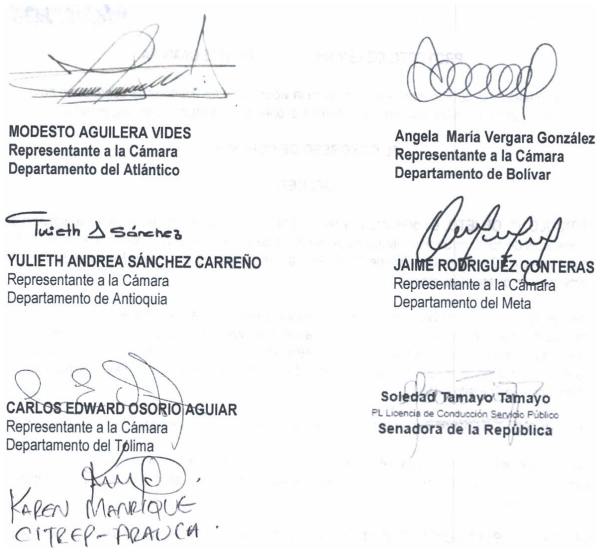 MODESTO AGUILERA VIDES
Representante a la Cámara
Departamento del Atlántico
Angela María Vergara González
Representante a la Cámara
Departamento de Bolívar
Yulieth A Sánchez
YULIETH ANDREA SÁNCHEZ CARREÑO
Representante a la Cámara
Departamento de Antioquia
JAIME RODRIGUEZ CONTERAS
Representante a la Cámara
Departamento del Meta
CARLOS EDWARD OSORIO AGUIAR
Representante a la Cámara
Departamento del Tolima
Soledad Tamayo Tamayo
PL Licencia de Conducción Servicio Público
Senadora de la República
KAREN MANRIQUE
CITREP-ARAUCA.